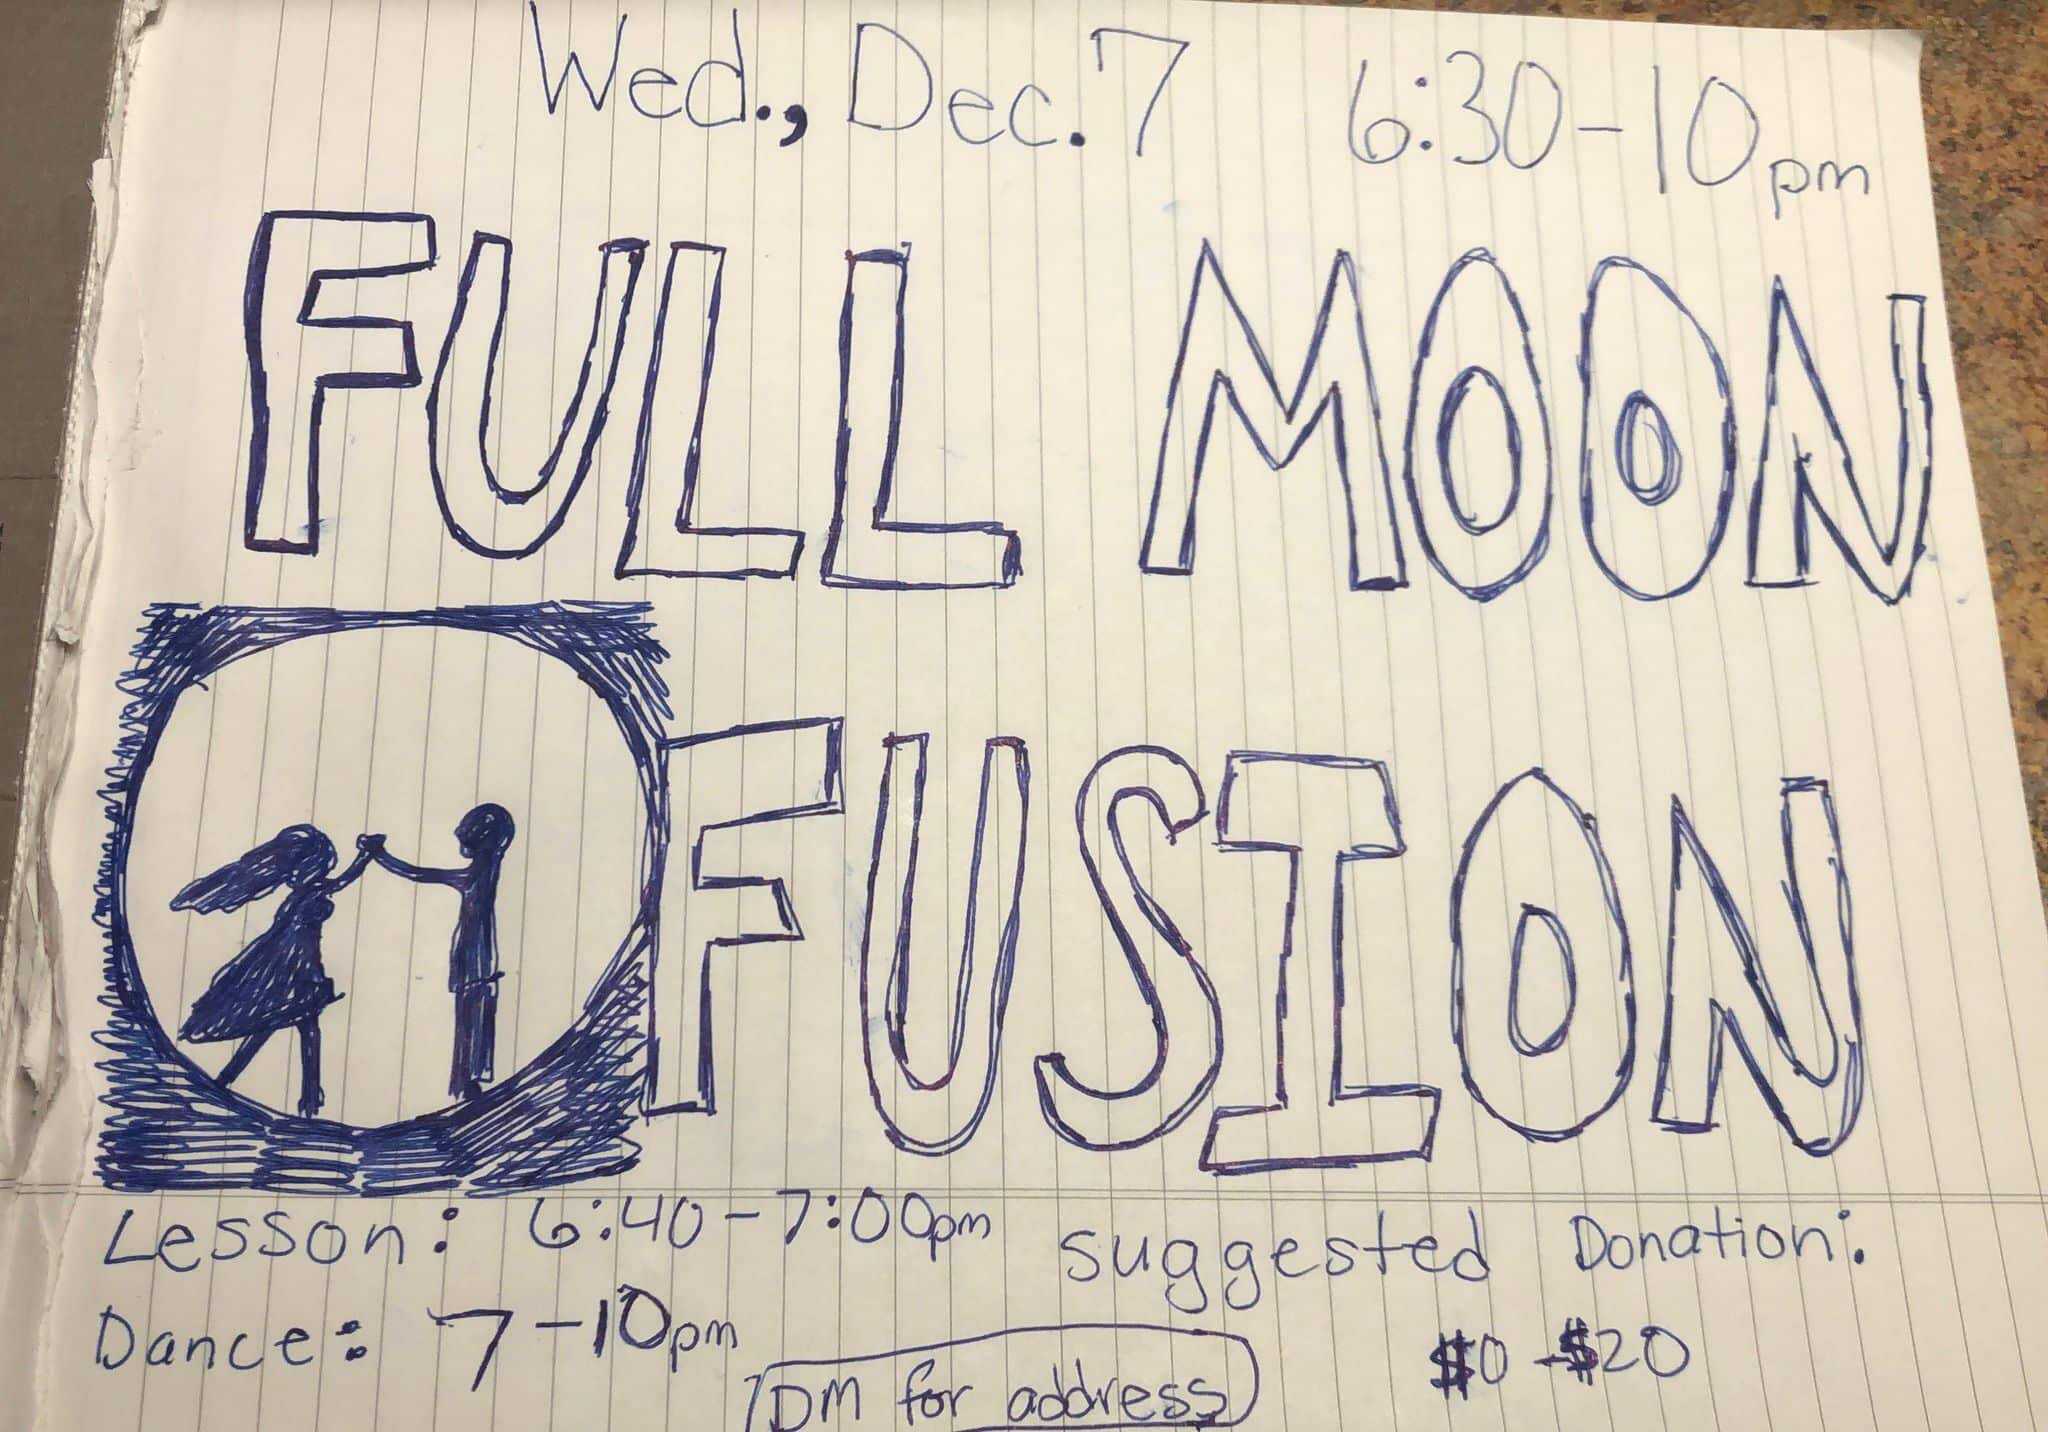 Wed., Dec. 7 6:30-10pm
FULL MOON
FUSION
Lesson: 6:40-7:00pm
Dance: 7-10pm
Suggested Donation:
$0-$20
DM for address